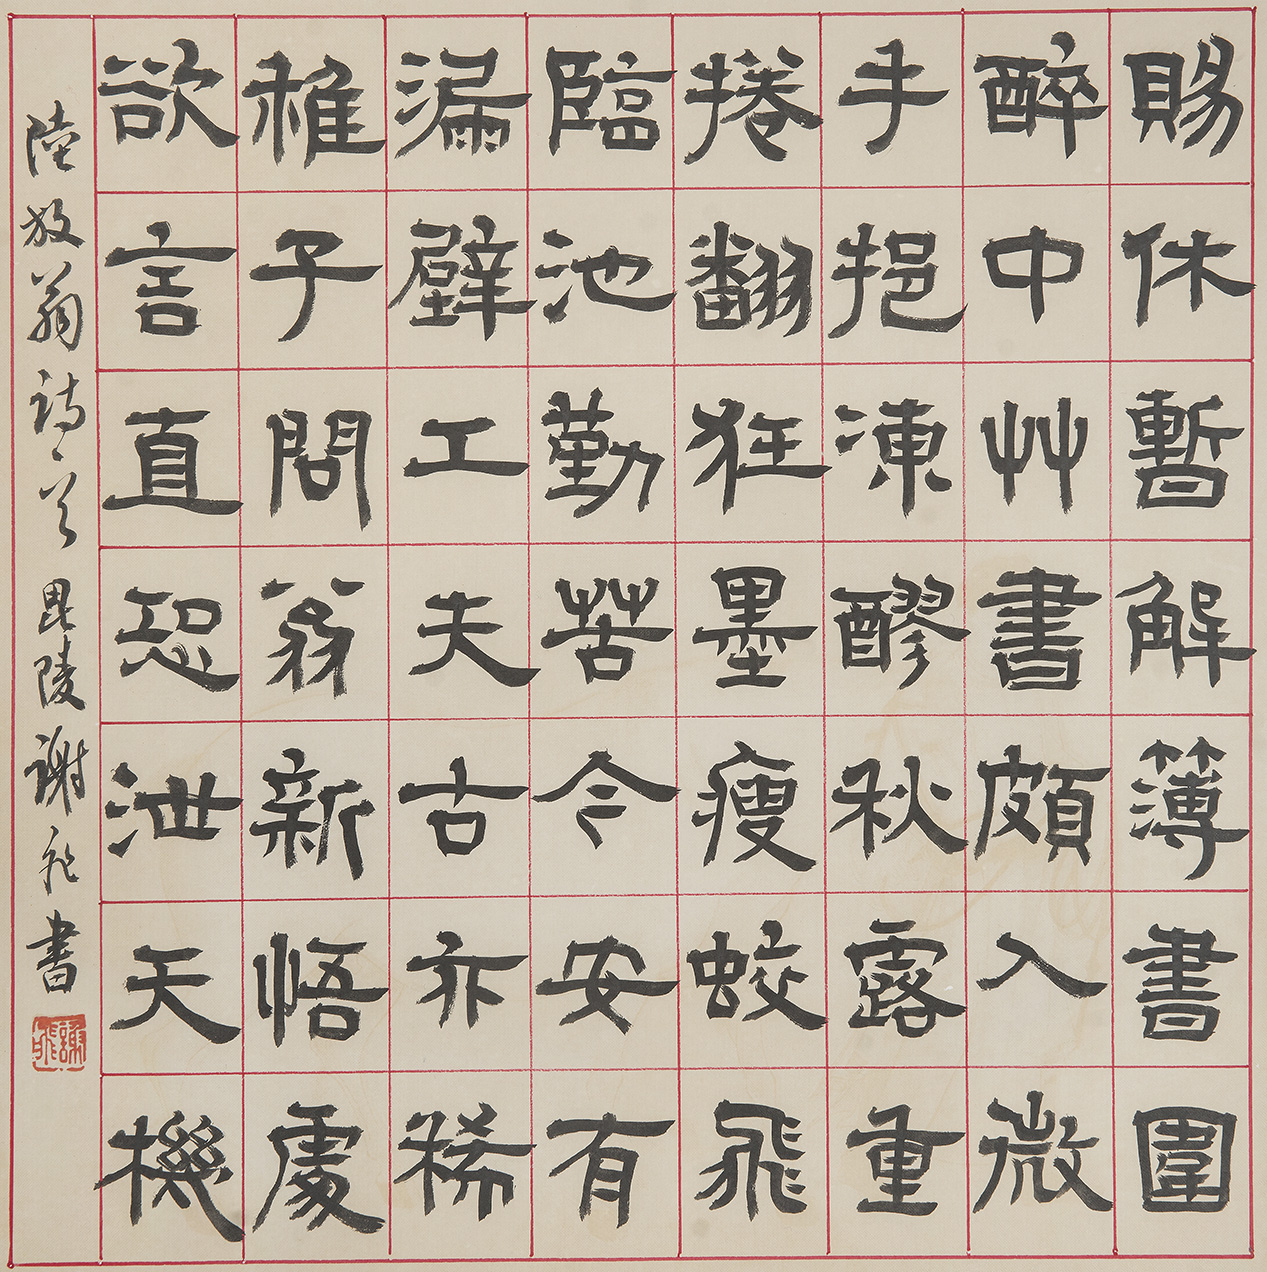 賜休暫解簿書圍
醉中艸書頗入微
手挹凍醪秋露重
捲翻狂墨瘦蛟飛
臨池勤苦今安有
漏壁工夫古亦稀
稚子問翁新悟處
欲言直恐泄天機
陸放翁詩一首 毘陵謝飛書
謝飛